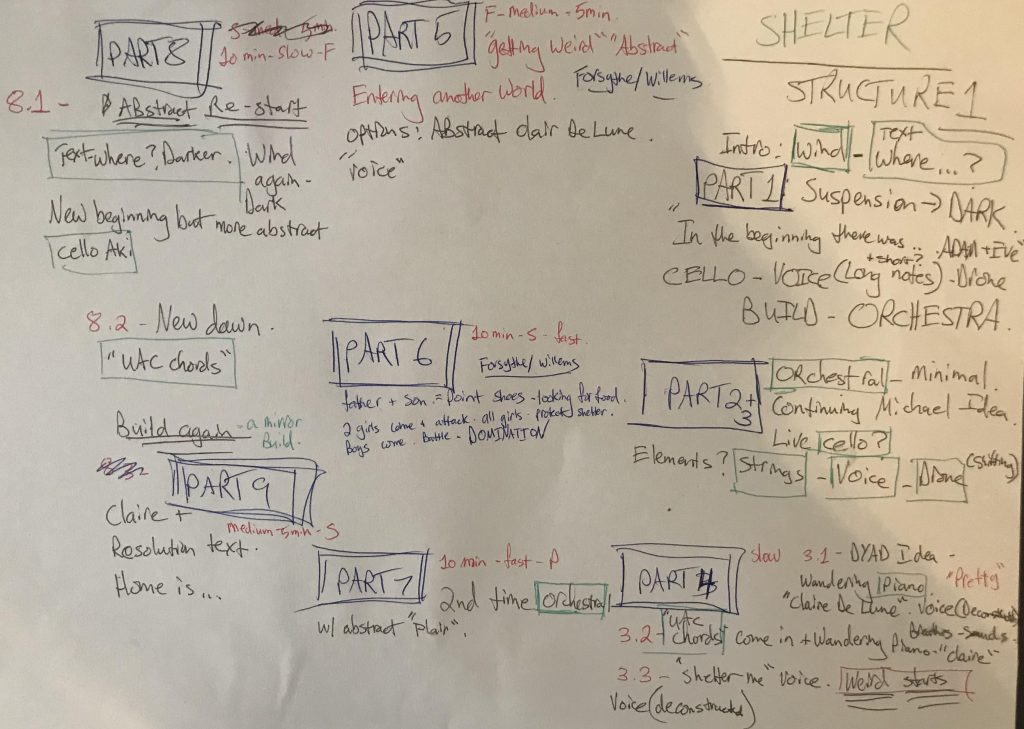 SHELTER
STRUCTURE 1
Intro: Wind - Text where...?
PART 1 Suspension → DARK
"In the beginning there was.. ADAM + EVE"
+ short?
CELLO - VOICE (Long notes) - Drone
BUILD - ORCHESTRA.
PART 2 + 3
Orchestral - Minimal.
Continuing Michael Idea
Live cello?
Elements? Strings - Voice - Drone (Shifting)
PART 4
slow 3.1 - DYAD Idea -
Wandering Piano "Pretty"
"Claire De Lune". Voice
Breathes - Sounds -
3.2 - "UTC chords" come in + Wandering Piano - "Claire"
3.3 - "Shelter me" voice. Weird starts
Voice (deconstructed)
PART 5
F - medium - 5min.
"getting weird" "Abstract"
Forsythe/Willems
Entering another world.
options: Abstract clair De Lune.
"Voice"
PART 6
10 min - S - fast.
Forsythe/Willems
father + son = point shoes - looking for food.
2 girls come + attack. all girls protect shelter.
Boys come. Battle - DOMINATION
PART 7
10 min - fast - P
2nd time orchestral
w/ abstract "Plain".
PART 8
10 min - slow - F
8.1 - Abstract Re-start
Text where? Darker. Wind
again -
Dark
New beginning but more abstract
cello Aki
8.2 - New dawn.
"UTC chords"
Build again - a mirror
Build.
PART 9
medium - 5min - S
Claire +
Resolution text.
Home is...